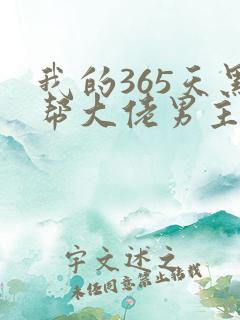 我的365天黑
帮大佬男主
宇文述之
未经同意禁止转载